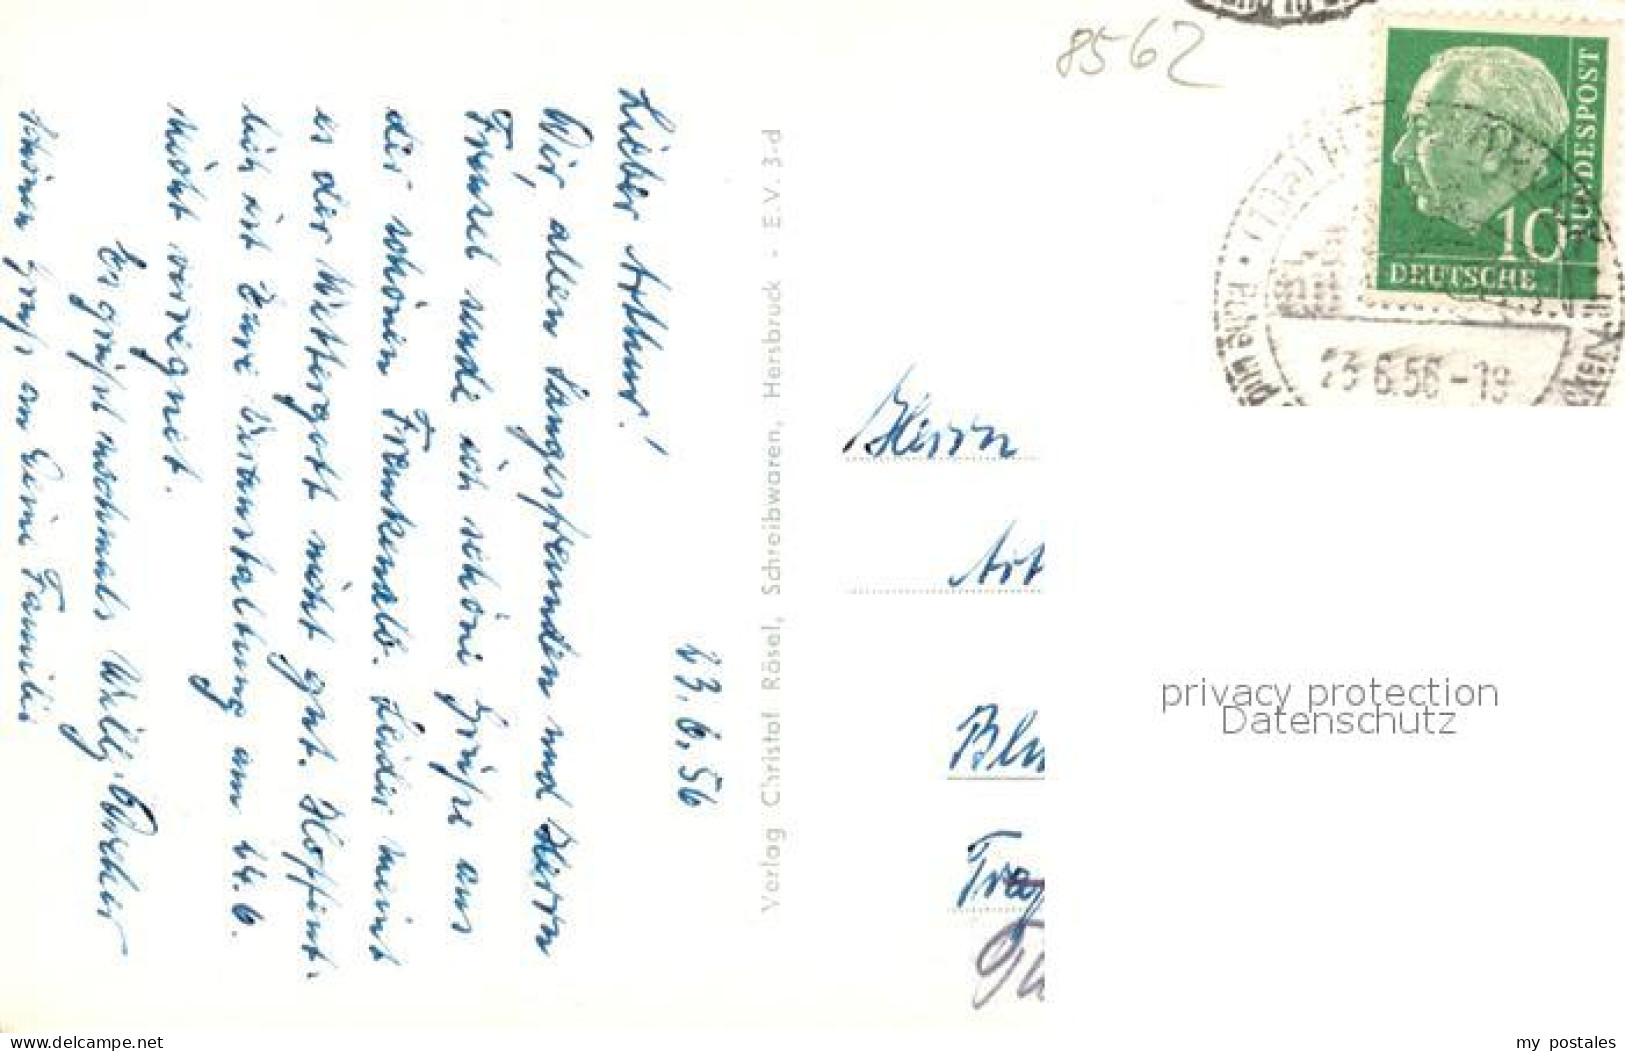 8562
BUNDESPOST
10
DEUTSCHE
23.6.56-18
23.6.56
Lieber Arthur!
Dir, allen Sangesfreunden und Herrn
sende ich schöne Grüße aus
der schönen Frankenalb. Leider meint
es der Wettergott nicht gut. Hoffent-
lich ist Eure Veranstaltung am 24.6.
nicht verregnet.
Es grüßt nochmals Willy
schönen Gruß an Deine Familie
Verlag Christof Rösel, Schreibwaren, Hersbruck - E.V. 3-d
Herrn
Art
Blu
privacy protection
Datenschutz
www.delcampe.net
my_postales